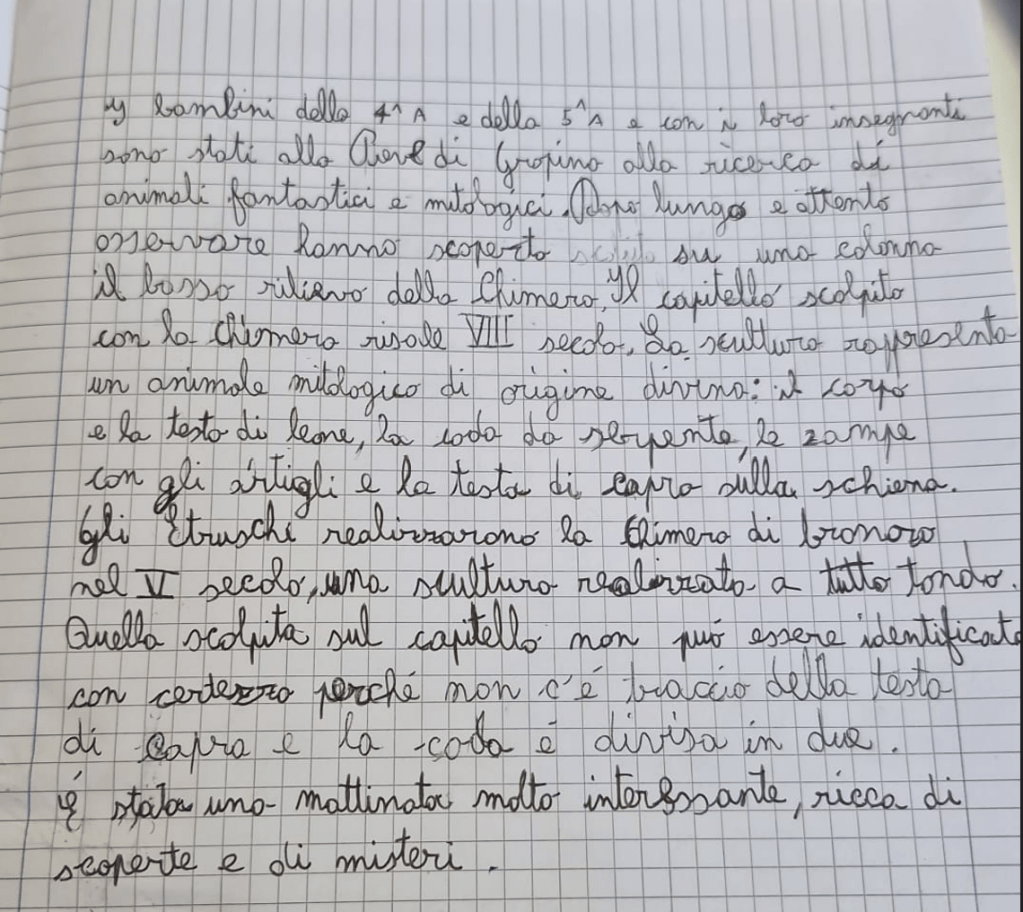 I bambini della 4^A e della 5^A e con i loro insegnanti
sono stati alla Pieve di Gropina alla ricerca di
animali fantastici e mitologici. Dopo lungo e attento
osservare hanno scoperto su una colonna
il basso rilievo della Chimera. Il capitello scolpito
con la Chimera risale VIII secolo. La scultura rappresenta
un animale mitologico di origine divina: il corpo
e la testa di leone, la coda da serpente, le zampe
con gli artigli e la testa di capra sulla schiena.
Gli Etruschi realizzarono la Chimera di bronzo
nel V secolo, una scultura realizzata a tutto tondo.
Quella scolpita sul capitello non può essere identificata
con certezza perché non c'é traccia della testa
di capra e la coda é divisa in due.
É stata una mattinata molto interessante, ricca di
scoperte e di misteri.